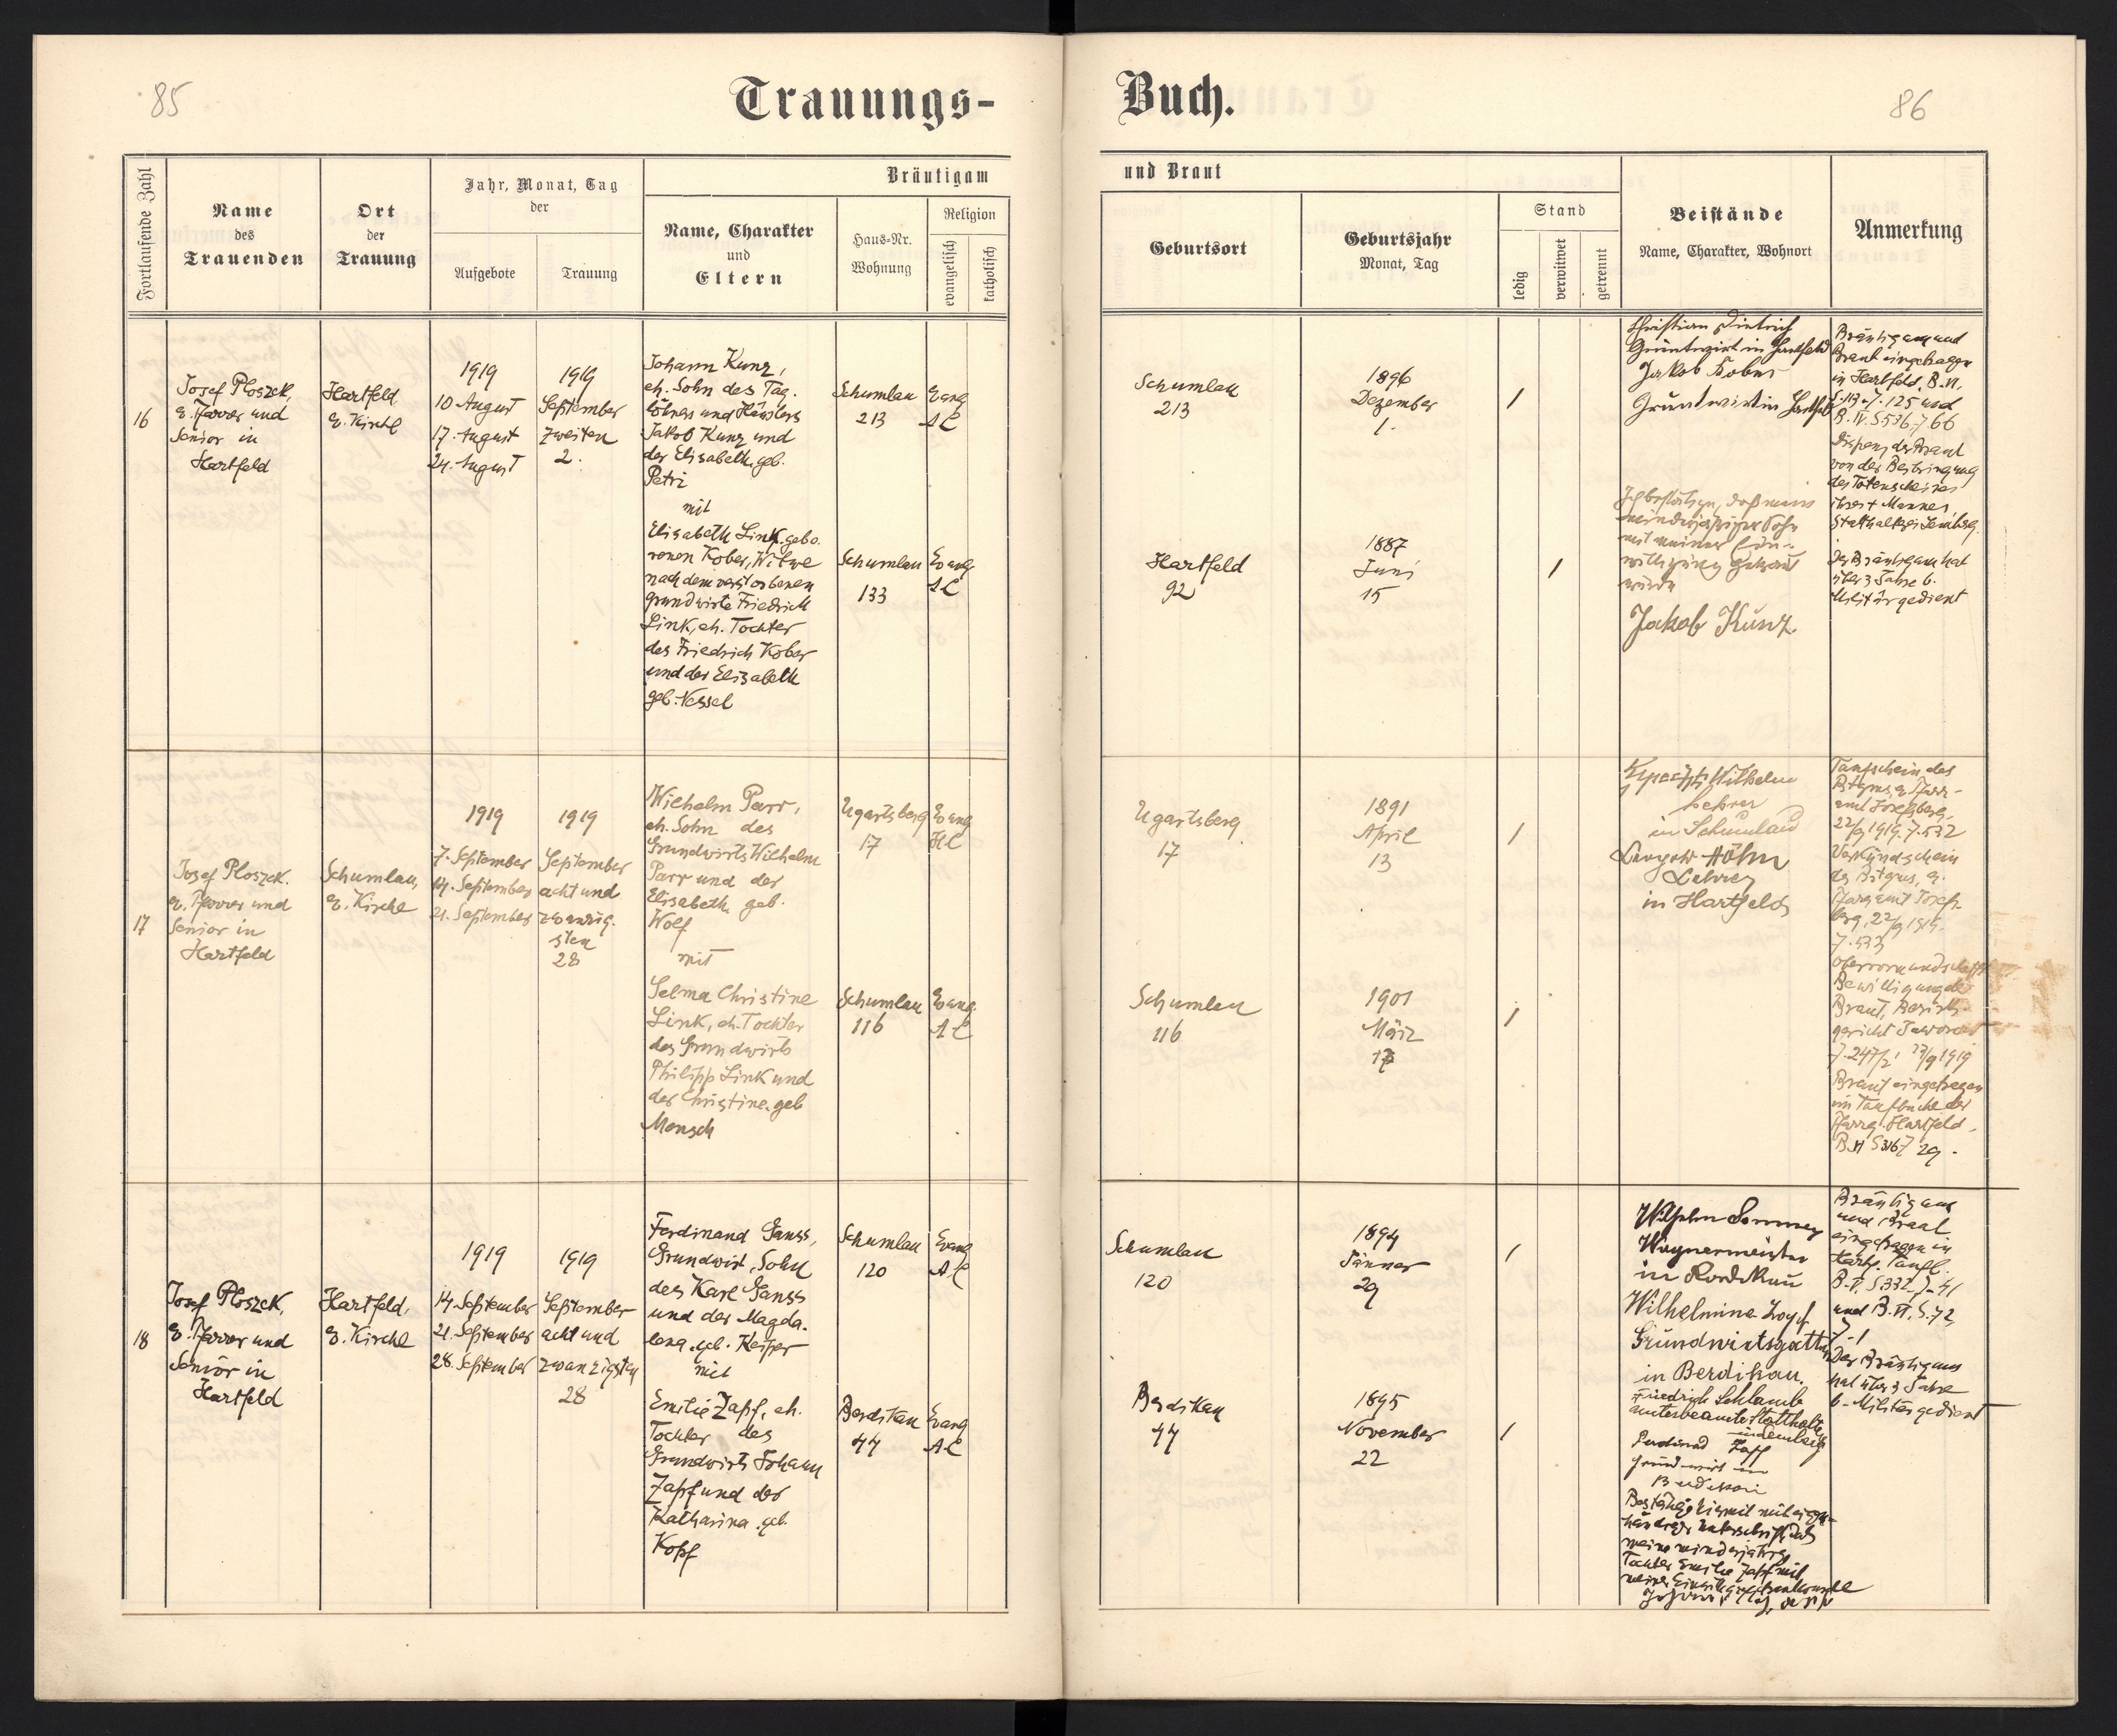 85
Trauungs-
Fortlaufende Zahl
Name
des
Trauenden
Ort
der
Trauung
Jahr, Monat, Tag
der
Aufgebote
Trauung
Bräutigam
Name, Charakter
und
Eltern
Haus-Nr.
Wohnung
Religion
evangelisch
katholisch
16
Josef Ploszek,
e. Pfarrer und
Senior in
Hartfeld
Hartfeld
e. Kirche
1919
10 August
17. August
24. August
1919
September
zweiten
2.
Johann Kunz,
eh. Sohn des Tag-
löhners und Häuslers
Jakob Kunz und
der Elisabeth, geb.
Petri
mit
Elisabeth Link, gebo-
renen Kober, Witwe
nach dem verstorbenen
Grundwirte Friedrich
Link, eh. Tochter
des Friedrich Kober
und der Elisabeth
geb. Nessel
Schumlau
213
Evang
AC
Schumlau
133
Evang
AC
17
Josef Ploszek.
e. Pfarrer und
Senior in
Hartfeld
Schumlau,
e. Kirche
1919
7. September
14. September
21. September
1919
September
acht und
zwanzig-
sten
28
Wilhelm Parr,
eh. Sohn des
Grundwirts Wilhelm
Parr und der
Elisabeth geb.
Wolf
mit
Selma Christine
Link, eh. Tochter
des Grundwirts
Philipp Link und
der Christine, geb
Mensch
Ugartsberg
17
Evang
HC
Schumlau
116
Evang.
AC
18
Josef Ploszek,
e. Pfarrer und
Senior in
Hartfeld
Hartfeld,
e. Kirche
1919
14. September
21. September
28. September
1919
September
acht und
zwanzigsten
28
Ferdinand Ganss,
Grundwirt, Sohn
des Karl Ganss
und der Magda-
lena, geb. Keiper
mit
Emilie Zapf, eh.
Tochter des
Grundwirts Johann
Zapf und der
Katharina geb.
Kopf
Schumlau
120
Evang
AC
Berdikau
44
Evang
AC
Buch.
86
und Braut
Geburtsort
Geburtsjahr
Monat, Tag
Stand
ledig
verwitwet
getrennt
Beistände
Name, Charakter, Wohnort
Anmerkung
Schumlau
213
1896
Dezember
1.
/
Hartfeld
92
1887
Juni
15
/
Christian Dietrich
Grundwirt in Hartfeld
Jakob Kober
Grundwirt in Hartfeld
Ich bestätige, daß mein
minderjähriger Sohn
mit meiner Ein-
willigung getraut
wurde
Jakob Kunz.
Bräutigam und
Braut eingetragen
in Hartfeld, B. VI,
S. 113 Z. 125 und
B. IV. S 536 Z 66
Dispens der Braut
von der Beibringung
des Totenscheines
ihres + Mannes,
Statthalterei Lemberg.
Der Bräutigam hat
über 3 Jahre b.
Militär gedient
Ugartsberg
17
1891
April
13
/
Schumlau
116
1901
März
17
/
Wilhelm
Lehrer
in Schumlau
Leopold Höhn
Lehrer
in Hartfeld
Taufschein des
Btgms, e. Pfarr-
amt Josefsberg,
22/9 1919. Z. 532
Verkündschein
des Btgms, e.
Pfarramt Josefs-
berg, 22/9 1919.
Z. 533
Obervormundschaftl.
Bewilligung der
Braut, Bezirks-
gericht Jaworow
Z. 247/21 1919
Braut eingetragen
im Taufbuche der
Pfarrg. Hartfeld,
B. VI S 316 Z 29.
Schumlau
120
1894
Jänner
29
/
Berdikau
44
1895
November
22
/
Wilhelm Sommer
Wagnermeister
in Berdikau
Wilhelmine Zopf
Grundwirtsgattin
in Berdikau.
Friedrich Schlamb
Unterbeamte Statthalterei
in Lemberg
Ferdinand Zapf
Grundwirt in
Berdikau
Bestätige hiermit mit eigen-
händiger Unterschrift daß
meine minderjährige
Tochter Emilie Zapf mit
meiner Einwilligung
Bräutigam
und Braut
eingetragen in
Hartf. Taufb.
B. V. S. 332 Z. 41
und B. VI. S. 72,
Z. 1
Der Bräutigam
hat über 3 Jahre
b. Militär gedient